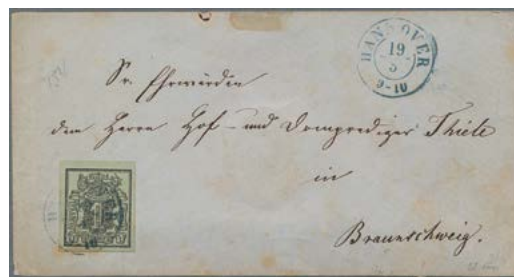 HANNOVER
19
5
9-10
Sr. Ehrwürden
dem Herrn Hof- und Domprediger Thiele
in
Braunschweig.
1